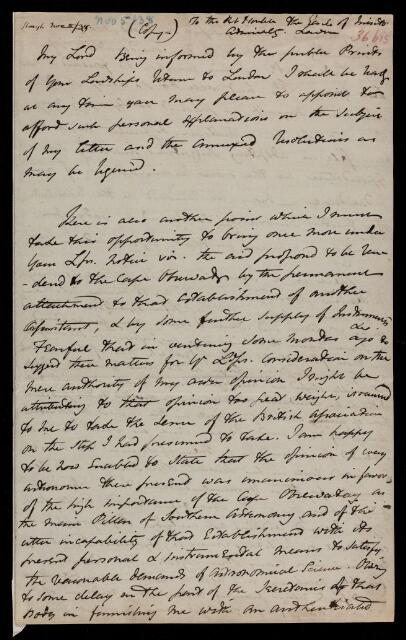 Slough Nov 5/38.
NOV 5 1838
(Copy)
To the Rt Honble the Lords of
Admiralty. London
My Lord Being informed by the public Prints
of Your Lordships return to London I shall be ready
at any time you may please to appoint to
afford such personal explanations on the subject
of my letter and the annexed Resolutions as
may be required.
There is also another point which I must
take this opportunity to bring once more under
Your Lps. notice viz. the aid proposed to be ren
-dered to the Cape Observatory by the permanent
attachment to that Establishment of another
Assistant, & by some further supply of Instruments &c.
Fearful that in venturing some months ago to
suggest these matters for Yr Lps. consideration on the
mere authority of my own opinion I might be
attributing to that opinion too great weight, it occurred
to me to take the sense of the British Association
on the step I had presumed to take. I am happy
to be now enabled to state that the opinion of every
astronomer there present was unanimous in favor
of the high importance of the Cape Observatory as
the main Pillar of Southern Astronomy and of the
utter incapability of that Establishment with its
present personal & instrumental means to satisfy
the reasonable demands of Astronomical Science. Owing
to some delay on the part of the Secretaries of that
Body in furnishing me with an authenticated